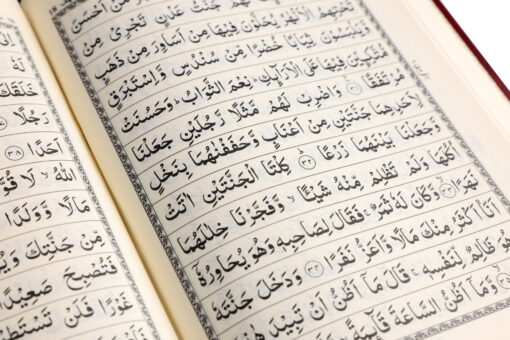 لَهُمْ جَنّٰتُ عَدْنٍ تَجْرِيْ مِنْ
تَحْتِهِمُ الْاَنْهٰرُ يُحَلَّوْنَ فِيْهَا مِنْ اَسَاوِرَ مِنْ ذَهَبٍ
وَّيَلْبَسُوْنَ ثِيَابًا خُضْرًا مِّنْ سُنْدُسٍ وَّاِسْتَبْرَقٍ
مُّتَّكِـِٕيْنَ فِيْهَا عَلَى الْاَرَآىِٕكِ ؕ نِعْمَ الثَّوَابُ ؕ وَحَسُنَتْ
مُرْتَفَقًا ۝٣١ وَاضْرِبْ لَهُمْ مَّثَلًا رَّجُلَيْنِ جَعَلْنَا
لِاَحَدِهِمَا جَنَّتَيْنِ مِنْ اَعْنَابٍ وَّحَفَفْنٰهُمَا بِنَخْلٍ
وَّجَعَلْنَا بَيْنَهُمَا زَرْعًا ۝٣٢ كِلْتَا الْجَنَّتَيْنِ اٰتَتْ
اُكُلَهَا وَلَمْ تَظْلِمْ مِّنْهُ شَيْـًٔا ۙ وَّفَجَّرْنَا خِلٰلَهُمَا
نَهَرًا ۝٣٣ وَّكَانَ لَهٗ ثَمَرٌ ۚ فَقَالَ لِصَاحِبِهٖ وَهُوَ يُحَاوِرُهٗۤ
اَنَا اَكْثَرُ مِنْكَ مَالًا وَّاَعَزُّ نَفَرًا ۝٣٤ وَدَخَلَ جَنَّتَهٗ
وَهُوَ ظَالِمٌ لِّنَفْسِهٖ ۚ قَالَ مَاۤ اَظُنُّ اَنْ تَبِيْدَ هٰذِهٖۤ
۝٣٥ وَّمَاۤ اَظُنُّ السَّاعَةَ قَآىِٕمَةً
لَهٗ
خَلَقَكَ
رَجُلًا
اَحَدًا ۝٣٨
اللّٰهُ ۙ لَا قُوَّةَ
مَالًا وَّوَلَدًا
مِّنْ جَنَّتِكَ
فَتُصْبِحَ صَعِيْدًا
غَوْرًا فَلَنْ تَسْتَطِ